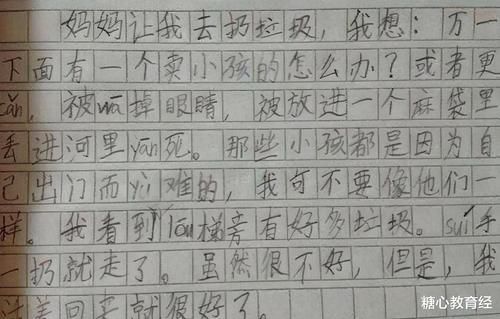 妈妈让我去扔垃圾，我想：万一
下面有一个卖小孩的怎么办？或者更
cǎn，被wā掉眼睛，被放进一个麻袋里
丢进河里yān死。那些小孩都是因为自
己出门而yù难的，我可不要像他们一
样。我看到lóu梯旁有好多垃圾。suí手
一扔就走了。虽然很不好，但是，我
活着回来就很好了。
糖心教育经